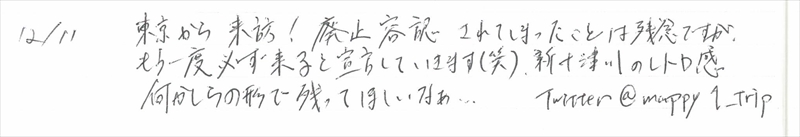 12/11 東京から来訪！廃止容認されてしまったことは残念ですが、
もう一度必ず来ると宣言しています(笑)。新十津川のレトロ感
何かしらの形で残ってほしいなぁ… Twitter@mappy1_trip